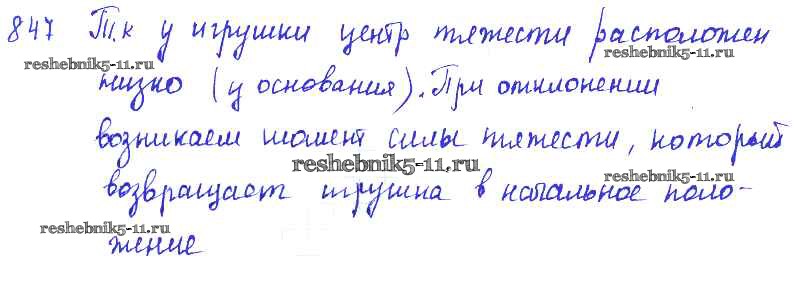 847 Т.к у игрушки центр тяжести расположен
reshebnik5-11.ru reshebnik5-11.ru
низко (у основания). При отклонении
возникает момент силы тяжести, который
reshebnik5-11.ru reshebnik5-11.ru
возвращает игрушка в начальное поло-
reshebnik5-11.ru
жение